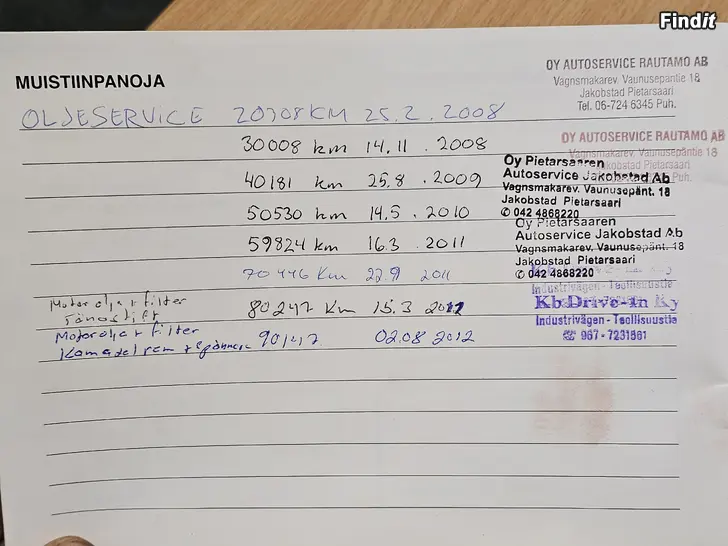 Findit
MUISTIINPANOJA
OY AUTOSERVICE RAUTAMO AB
Vagnsmakarev. Vaunusepäntie 18
Jakobstad Pietarsaari
Tel. 06-724 6345 Puh.
OLJESERVICE 20708KM 25.2.2008
OY AUTOSERVICE RAUTAMO AB
Vagnsmakarev. Vaunusepäntie 18
Jakobstad Pietarsaari
30008 km 14.11.2008
Oy Pietarsaaren
Autoservice Jakobstad Ab
Vagnsmakarev. Vaunusepänt. 18
Jakobstad Pietarsaari
✆ 042 4868220
40181 km 25.8.2009
50530 km 14.5.2010
Oy Pietarsaaren
Autoservice Jakobstad Ab
Vagnsmakarev. Vaunusepänt. 18
Jakobstad Pietarsaari
✆ 042 4868220
59824 km 16.3.2011
70446 Km 22.9 2011
Industrivägen - Teollisuustie
Motorolja + filter
80247 Km 15.3 2012
Kb Drive-in Ky
Industrivägen - Teollisuustie
☎ 967-7231561
Motorolja + filter
Kamadelrem + 90147 02.08 2012